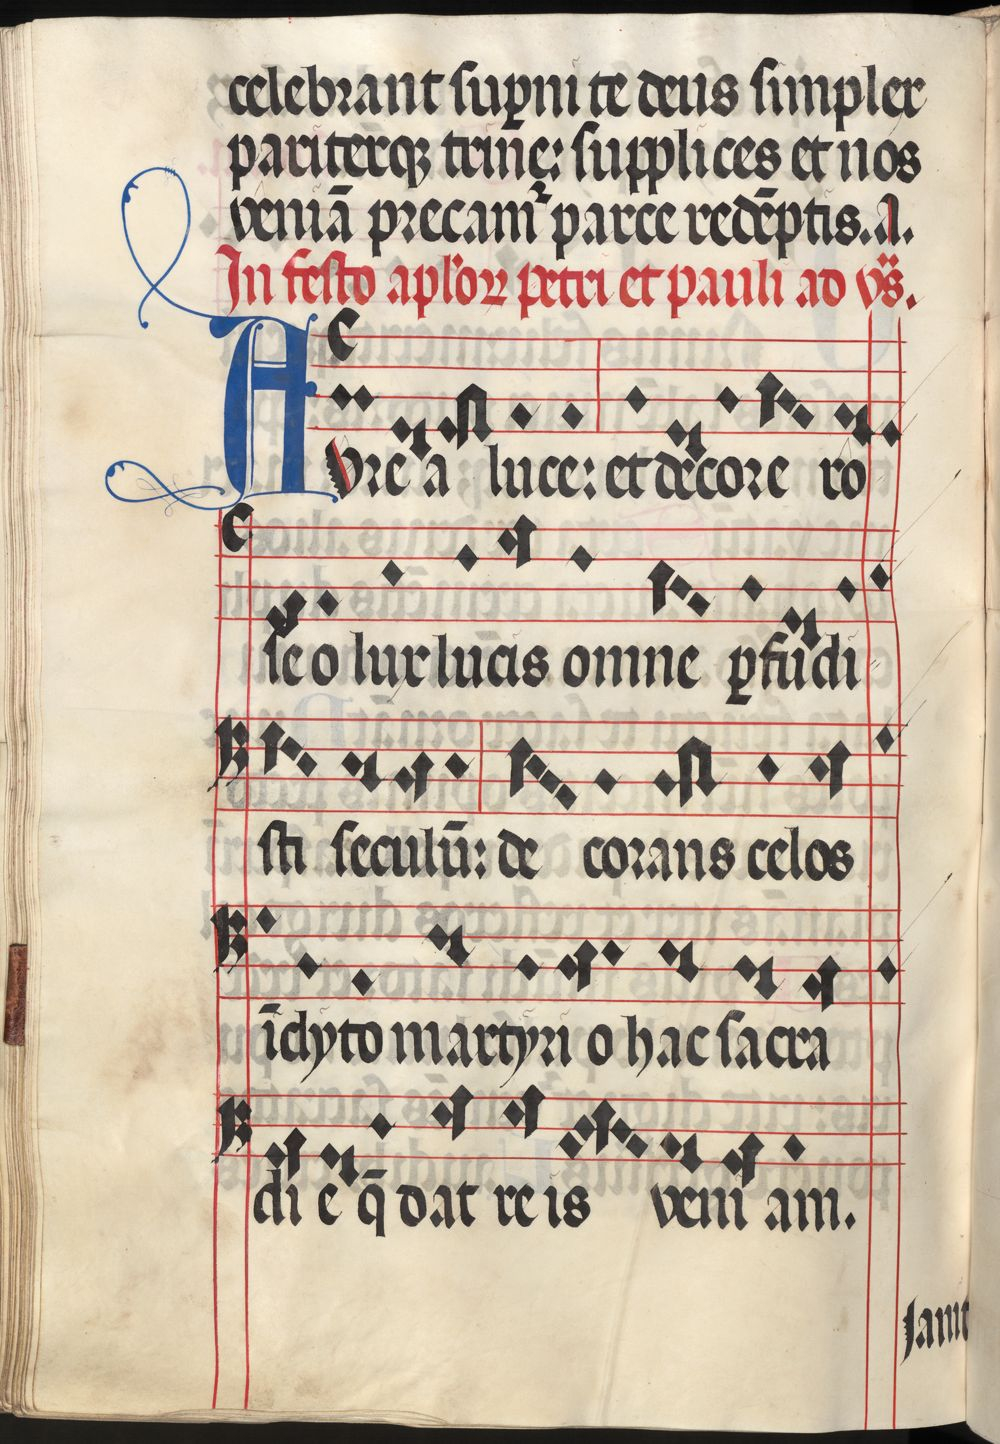 celebrant sup̲ni te deus simplex
pariterqꝫ trine: supplices et nos
veniā precamᷣ parce redēptis. A.
In festo apl'oꝝ petri et pauli ad vs̄.
AVrea luce: et decore ro
seo lux lucis omne ꝑfūdi
sti seculū: decorans celos
īclyto martyrio hac sacra
die q̄ dat reis veniam.
Janit